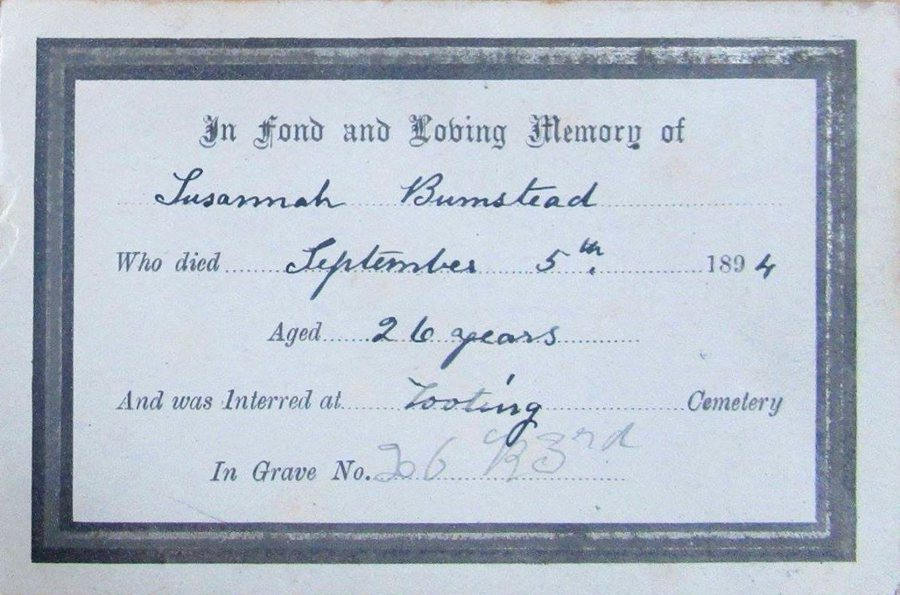 In Fond and Loving Memory of
Susannah Bumstead
Who died September 5th. 1894
Aged 26 years
And was Interred at Tooting Cemetery
In Grave No. 26 R 3rd